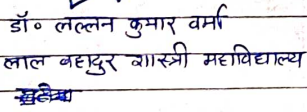 डॉ० लल्लन कुमार वर्मा
लाल बहादुर शास्त्री महाविद्यालय